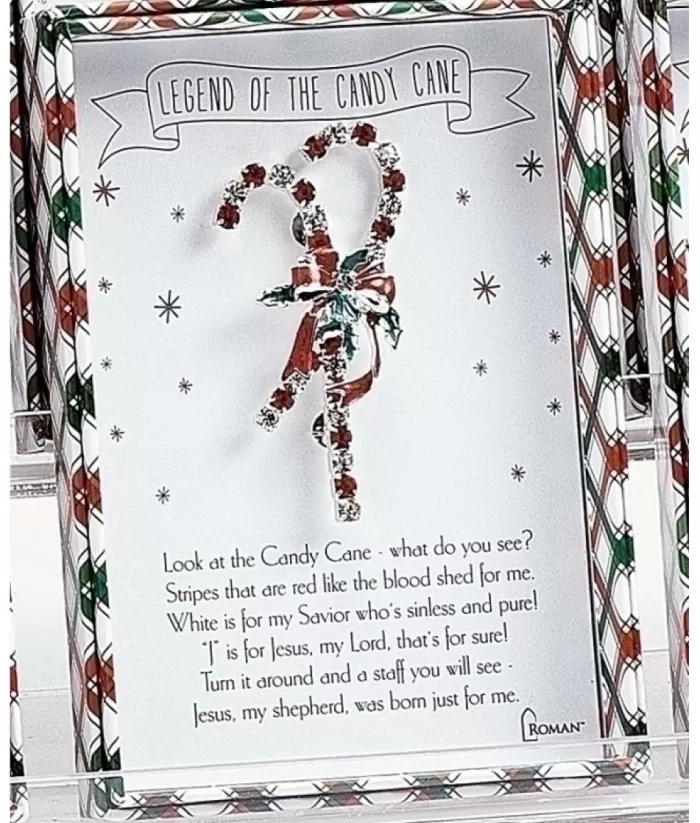 LEGEND OF THE CANDY CANE
Look at the Candy Cane - what do you see?
Stripes that are red like the blood shed for me.
White is for my Savior who's sinless and pure!
"J" is for Jesus, my Lord, that's for sure!
Turn it around and a staff you will see -
Jesus, my shepherd, was born just for me.
ROMAN™